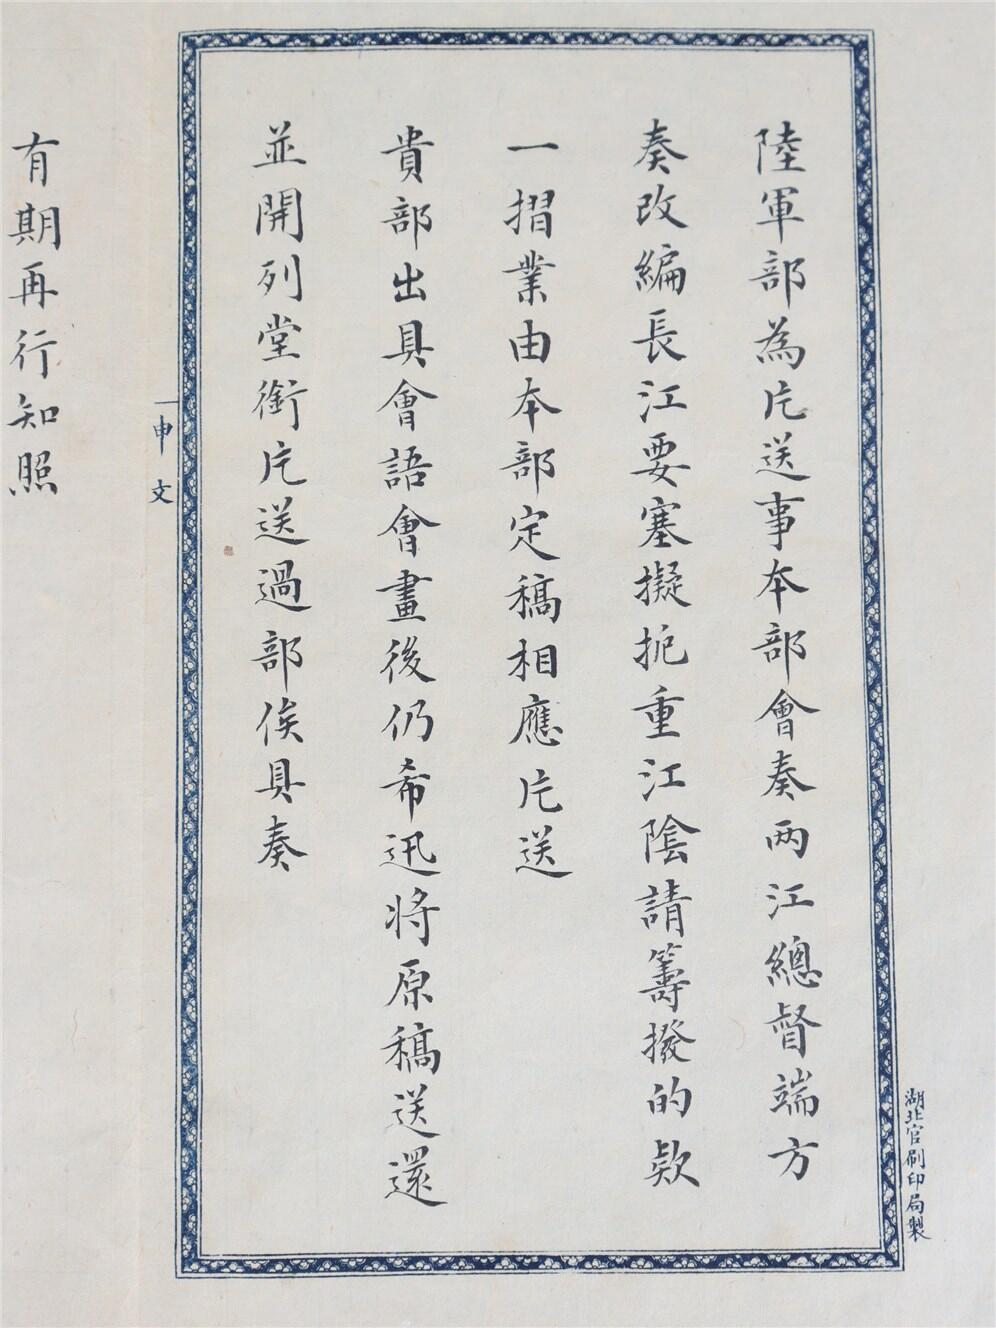 陸軍部為片送事本部會奏两江總督端方
奏改編長江要塞擬扼重江陰請籌撥的欵
一摺業由本部定稿相應片送
貴部出具會語會畫後仍希迅將原稿送還
並開列堂銜片送過部俟具奏
有期再行知照
申文
湖北官刷印局製